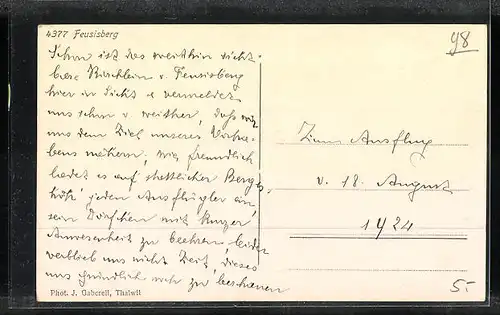 4377 Feusisberg
Schon ist das weithin sicht-
bare Kirchlein v. Feusisberg
hier in Sicht & vermeldet
uns schon v. weither, dass wir
uns dem Ziel unseres Vorha-
bens nähern; wie freundlich
ladet es auf stattlicher Bergs-
höh' jeden Ausflügler ein
sein Dörfchen mit kurzer
Anwesenheit zu beehren, leider
verblieb uns nicht Zeit, dieses
uns gründlich zu beschauen
Phot. J. Gaberell, Thalwil
98
Zum Ausflug
v. 18. August
1924
5.-